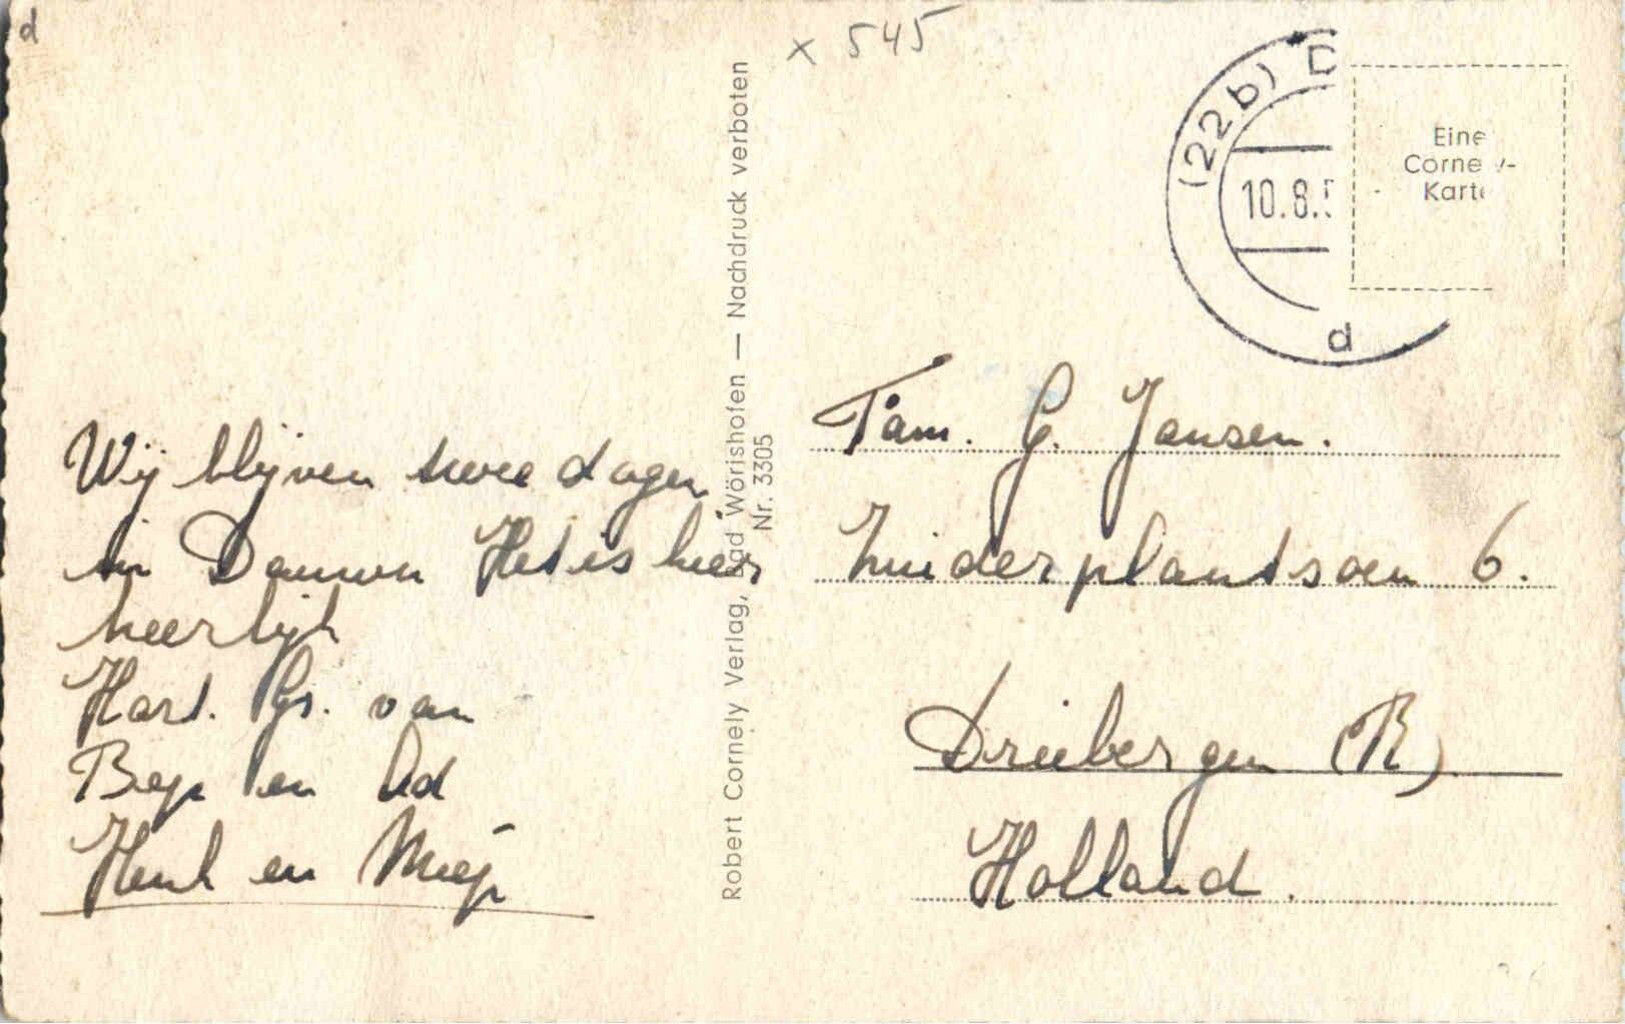 d
x 545
(22b) D
10.8.5
d
Eine
Cornely-
Karte
Wij blijven twee dagen
in Daunun Het is hier
heerlijk
Hart. Gr. van
Bep en Ad
Henk en Miep
Robert Cornely Verlag, Bad Wörishofen — Nachdruck verboten
Nr. 3305
Fam. G. Jansen.
Zuiderplantsoen 6.
Driebergen (R)
Holland.